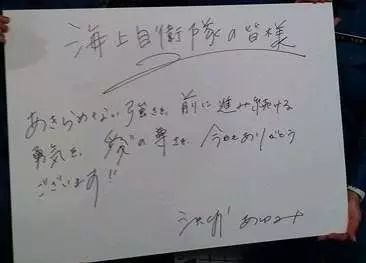 海上自衛隊の皆様
あきらめない強さを、前に進み続ける
勇気を、の尊さを、今日もありがとう
ございます!!